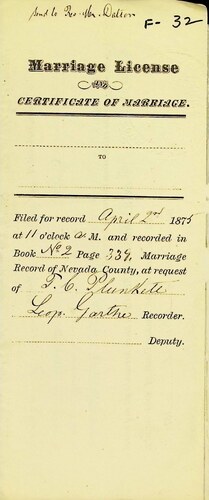 Send to Rev. Mr. Dalton
F-32
Marriage License
AND
CERTIFICATE OF MARRIAGE.
TO
Filed for record April 2nd 1875
at 11 o'clock a M. and recorded in
Book No 2 Page 339, Marriage
Record of Nevada County, at request
of T. C. Plunkett
Leop. Garthe Recorder.
Deputy.